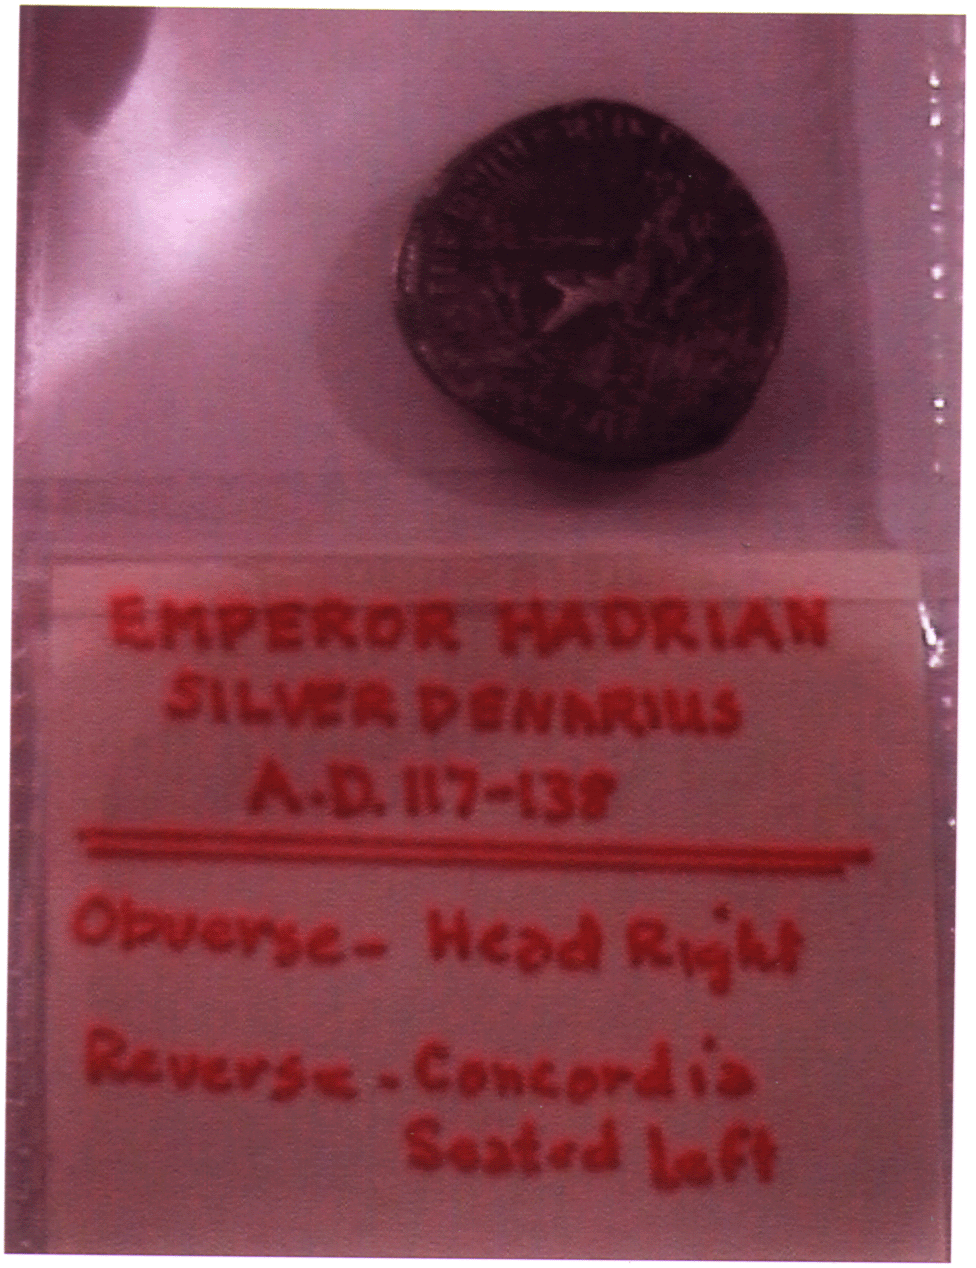 EMPEROR HADRIAN
SILVER DENARIUS
A.D. 117-138
Obverse - Head Right
Reverse - Concordia
Seated Left